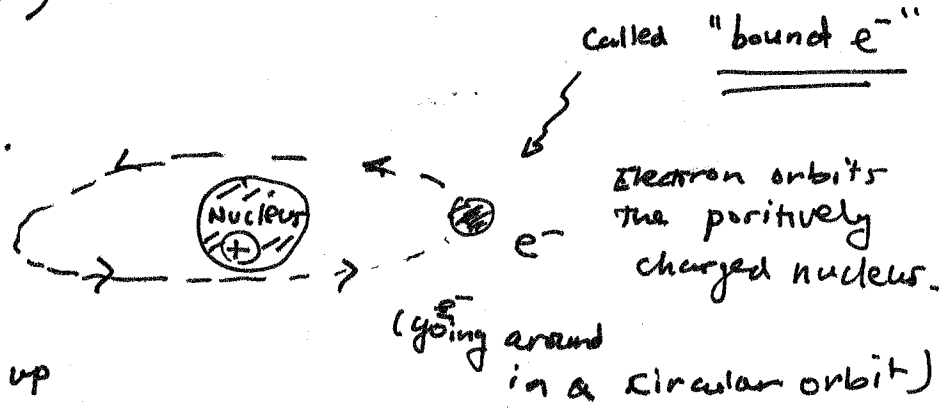 )
Called "bound e⁻"
Nucleus
+
e⁻
Electron orbits
the positively
charged nucleus.
e⁻
(going around
in a circular orbit)
up